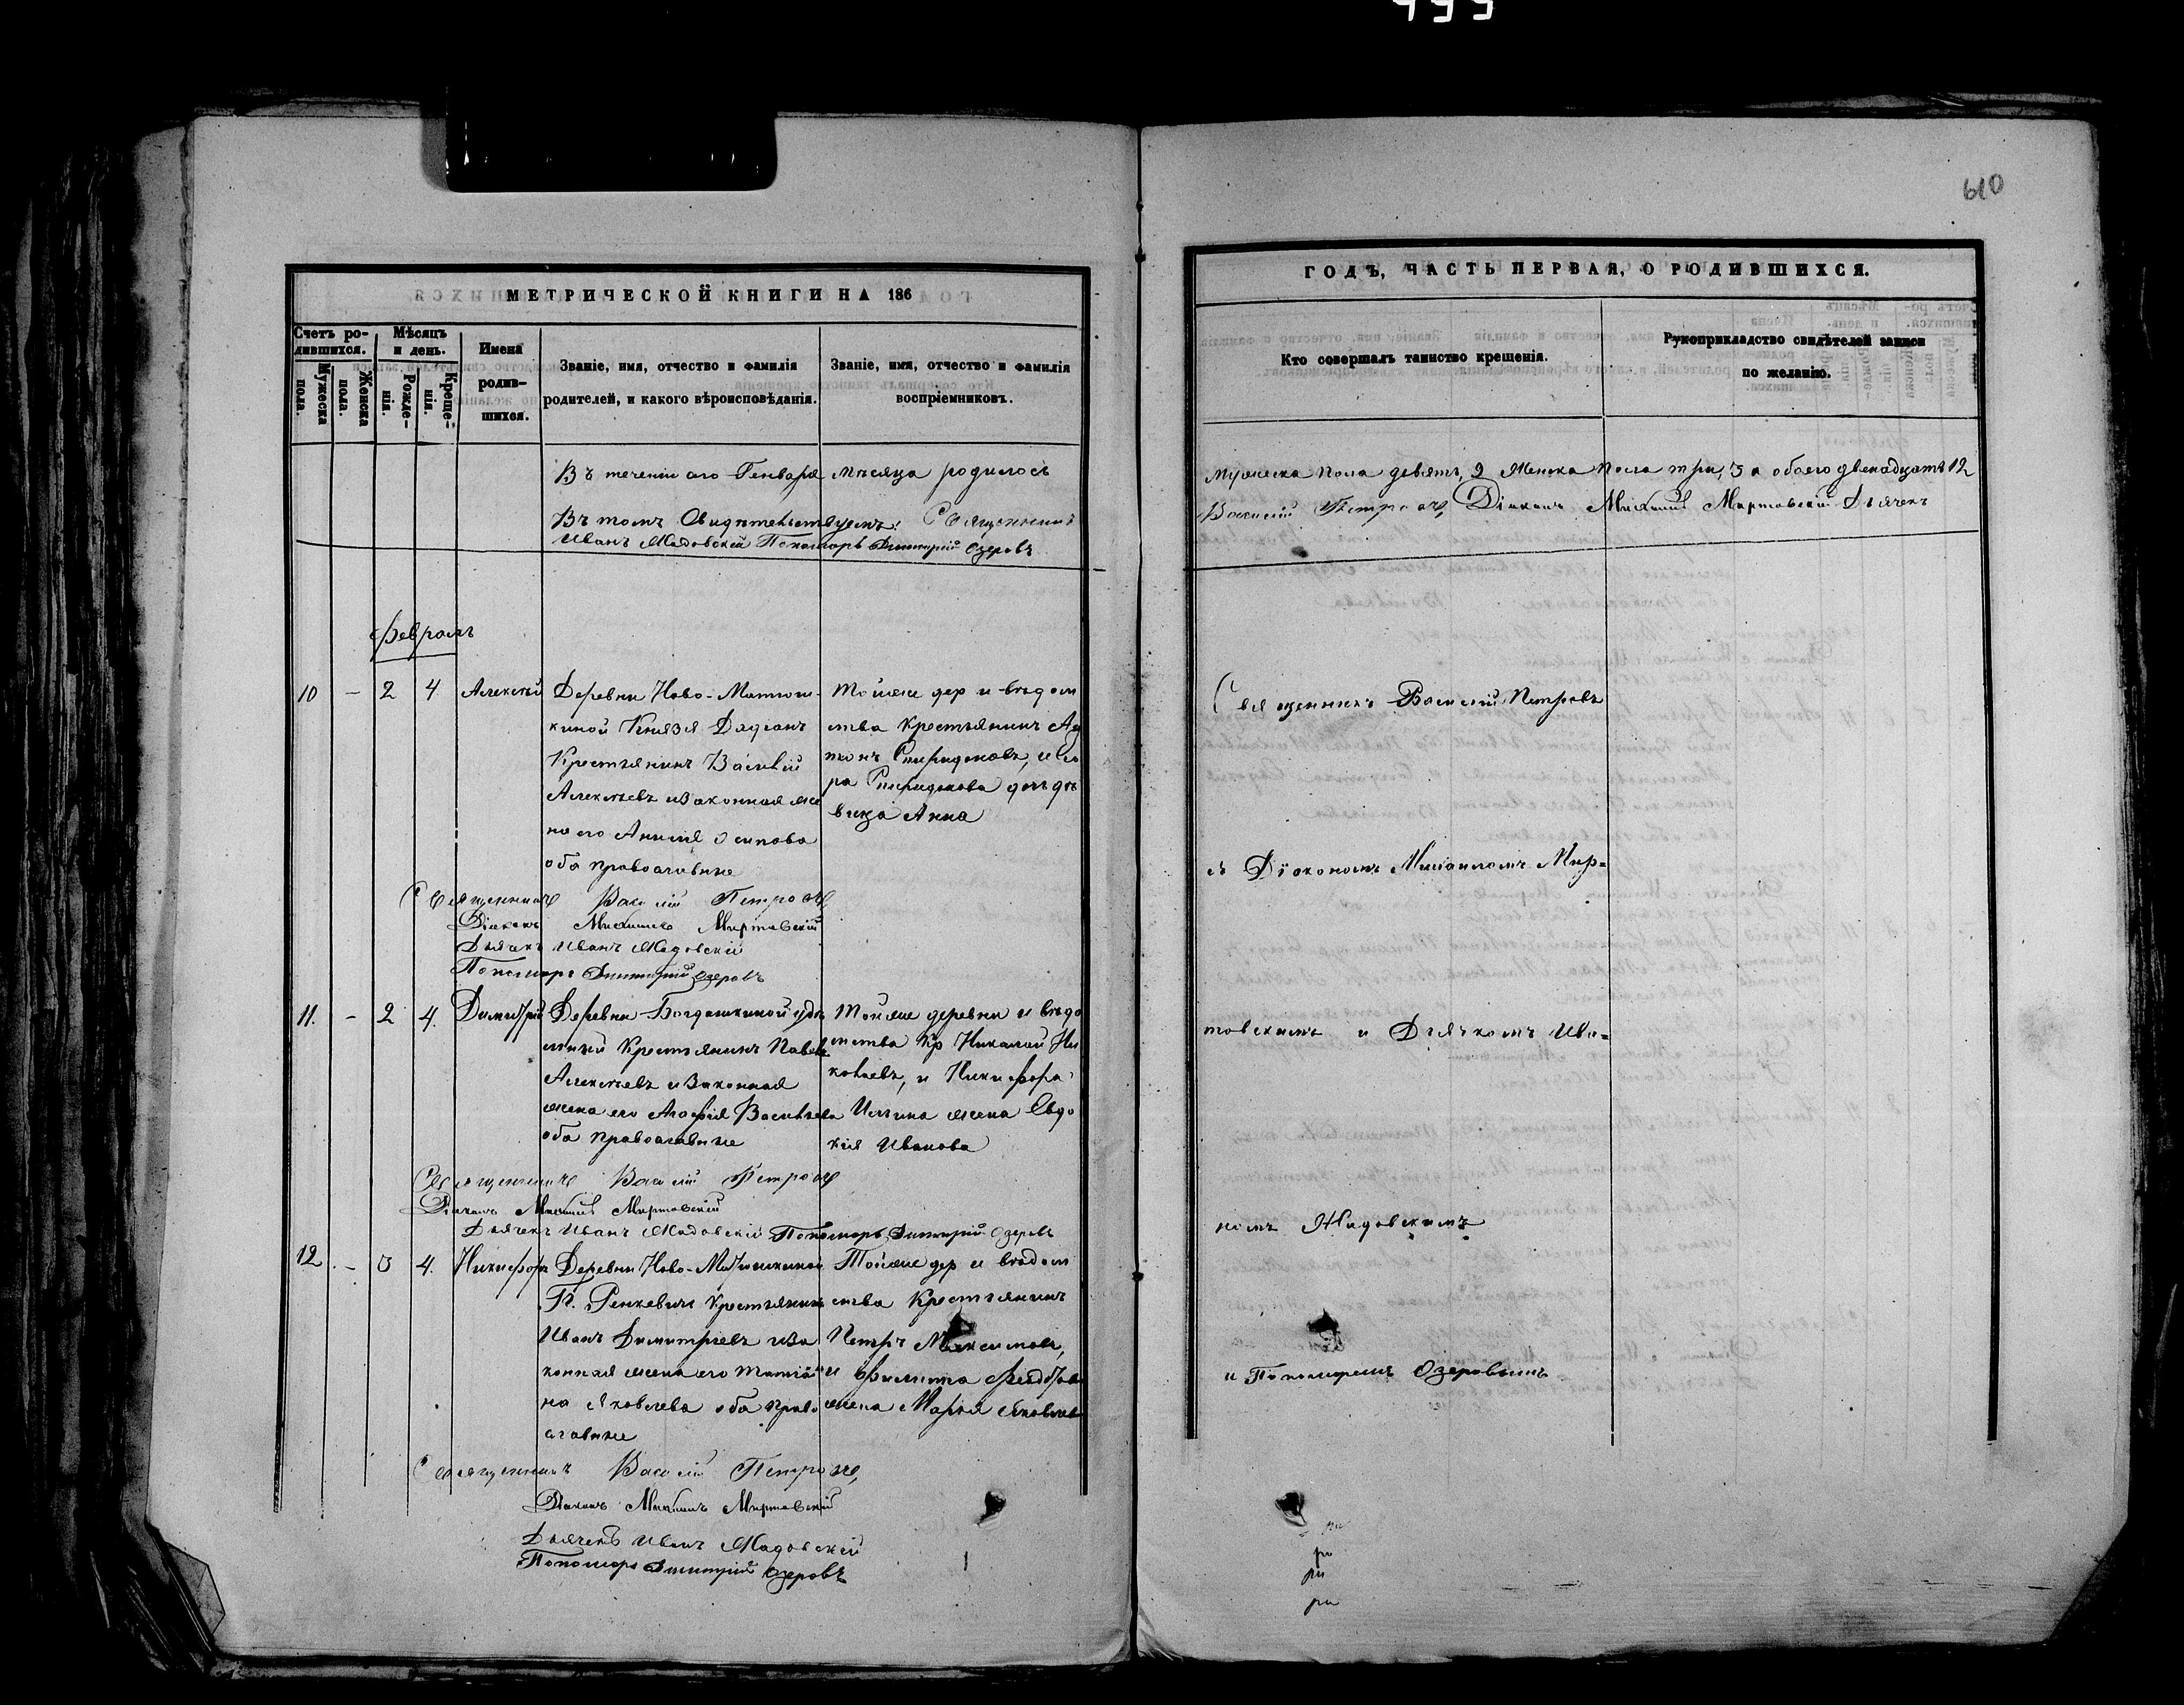 610
МЕТРИЧЕСКОЙ КНИГИ НА 186
ГОДЪ, ЧАСТЬ ПЕРВАЯ, О РОДИВШИХСЯ.
Счетъ ро-
дившихся.
Мужеска
пола.
Женска
пола.
Мѣсяцъ
и день.
Рожде-
нія.
Креще-
нія.
Имена
родив-
шихся.
Званіе, имя, отчество и фамилія
родителей, и какого вѣроисповѣданія.
Званіе, имя, отчество и фамилія
воспріемниковъ.
Кто совершалъ таинство крещенія.
Рукоприкладство свидѣтелей записи
по желанію.
Въ теченіи сего Генваря мѣсяца родилось
мужеска пола девять, 9 женска пола три, 3 а обоего двенадцать 12
Въ томъ свидѣтельствуемъ: Священникъ
Василій Петровъ, Діаконъ Михаилъ Миртовскій Дьячекъ
Иванъ Жадовскій Пономарь Димитрій Озеровъ
Февраль
10 – 2 4 Алексѣй
Деревни Ново-Матюш-
киной Князя Дадіанъ
Крестьянинъ Василій
Алексѣевъ и законная же
на его Анисія Осипова
оба православные
Тойже дер и вѣдом
ства крестьянинъ Ан
тонъ Спиридоновъ, и
Спиридонова дочь дѣ
вица Анна
Священникъ Василій Петровъ
Священникъ Василій Петровъ
Діаконъ Михаилъ Миртовскій
Дьячекъ Иванъ Жадовскій
Пономарь Димитрій Озеровъ
съ Діакономъ Михаиломъ Мир=
11. – 2 4. Димитрій
Деревни Богдашкиной удѣ
льный Крестьянинъ Павелъ
Алексѣевъ и законная
жена его Агафія Васильева
оба православные
Тойже деревни и вѣдо
мства Кр Николай Ни
колаевъ, и Никифора
Ильина жена Евдо
кия Иванова
товскимъ и Дьячкомъ Ива=
Священникъ Василій Петровъ
Діаконъ Михаилъ Миртовскій
Дьячекъ Иванъ Жадовскій Пономарь Димитрій Озеровъ
номъ Жадовскимъ
12. – 3 4. Никифоръ
Деревни Ново-Матюшкиной
Г. Ренкевичь Крестьянинъ
Иванъ Димитріевъ и за
конная жена его Татіа
на Яковлева оба право
славные
Тойже дер и вѣдом
ства Крестьянинъ
Петръ Максимовъ,
и Филиппа Федорова
жена Марья Яковлева
и Пономаремъ Озеровымъ
Священникъ Василій Петровъ,
Діаконъ Михаилъ Миртовскій
Дьячекъ Иванъ Жадовскій
Пономарь Димитрій Озеровъ